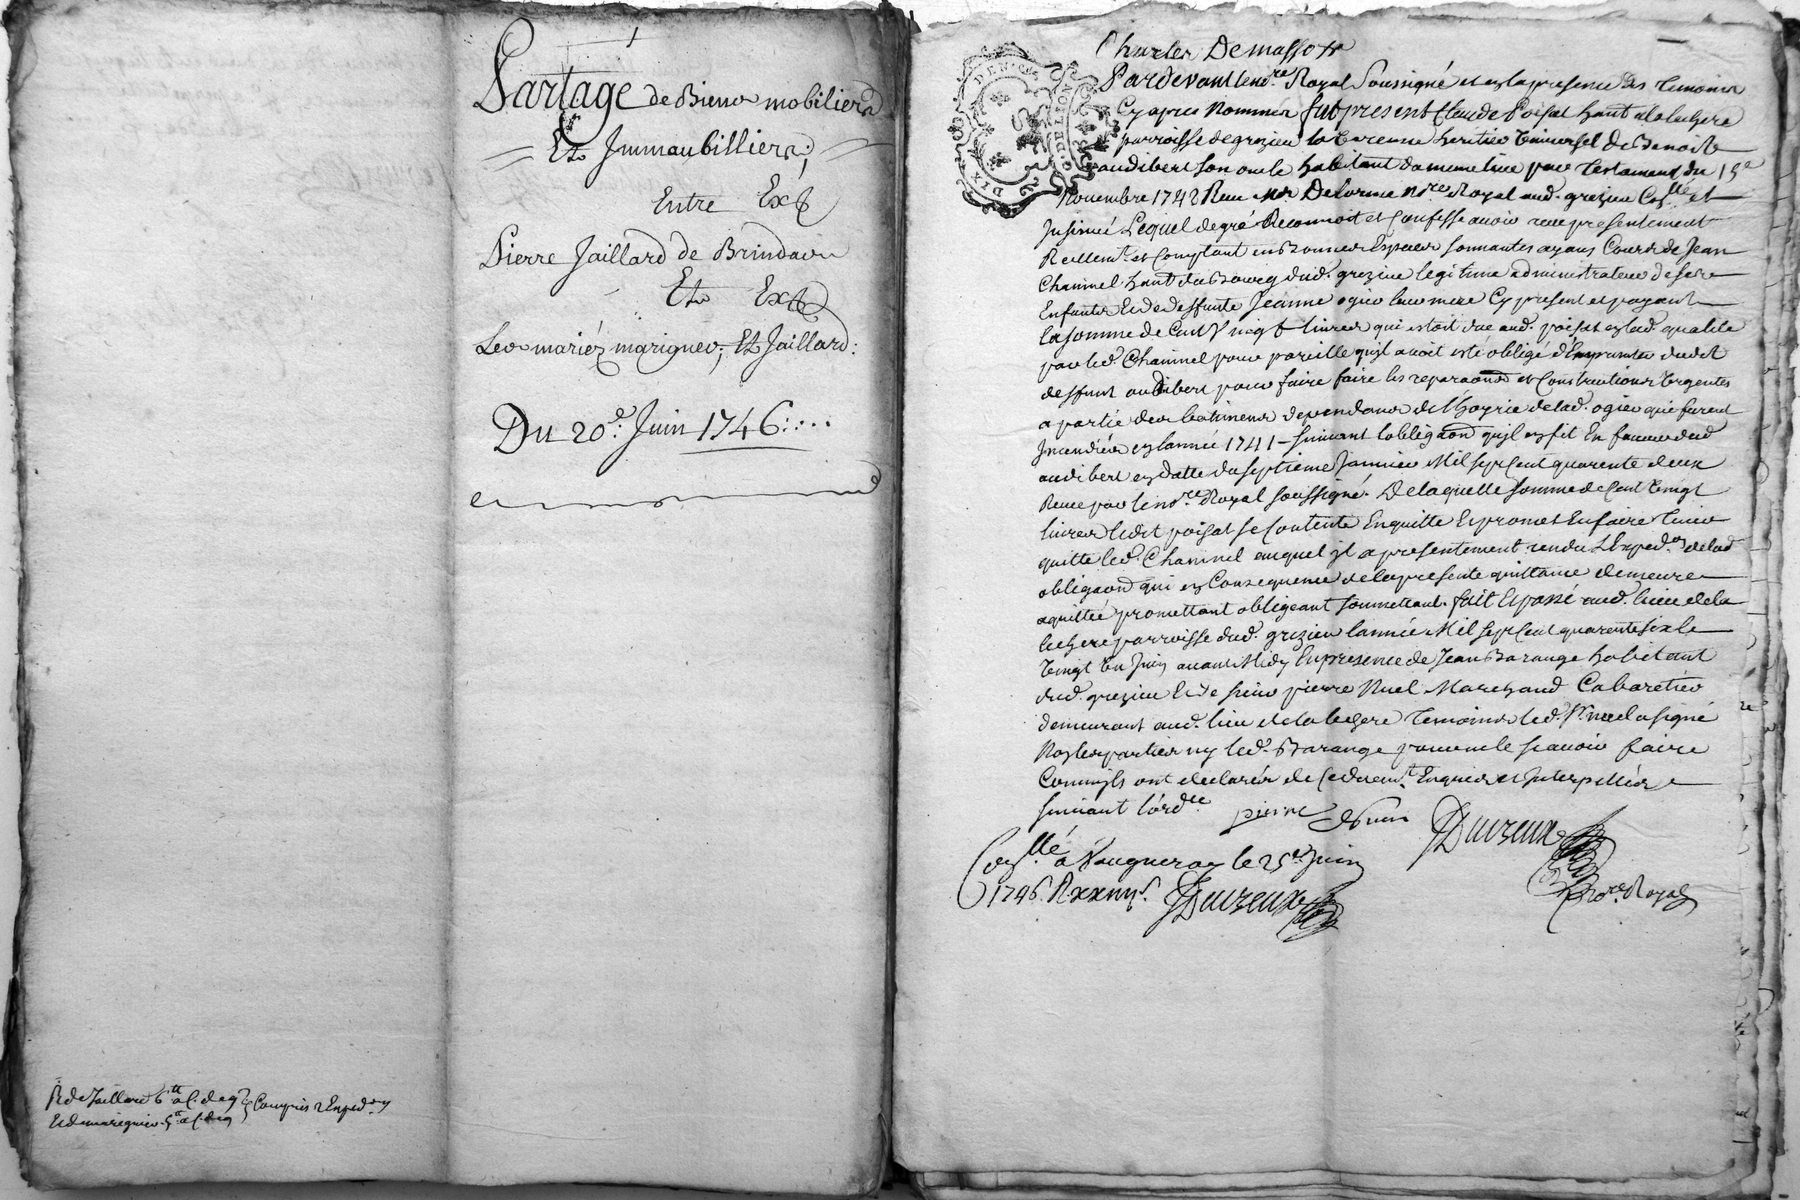 Partage de Biens mobiliers
Et Immaubilliers;
Entre Ex
Pierre Jaillard de Brindas
Et Ex
Les mariéz marignier; Et Jaillard:
Du 20e. Juin 1746:....
R de Jaillard 6tt
Compris 2 Exped.on
Et de marignier
Charles
DIX D. DE LION
DEN.
Pardevant le no.re Royal Soussigné et en la presence des temoins
Cy apres nommes fut present Claude Poisat hant. a la luzere
parroisse de grezieu la Varenne heritier Universel de Benoist
audibert son oncle habitant du meme lieu par testament du 15e
Novembre 1742 Reçu Me Delorme no.re Royal aud. grezieu Con.llé et
Insinué Lequel de gré Reconnoit et Confesse avoir reçu presentement
Reellem.t et Comptant en Bonnes Especes sonnantes ayans Cours de Jean
Chaninel hant. du Bourg dud. grezieu legitime administrateur de ses
Enfants Et de deffunte Jeanne ogier leur mere Cy present et payant
la somme de Cent Vingt livres qui estoit due aud. poisat en lad. qualité
par led. Chaninel pour pareille qu'il avoit esté obligé d'Emprunter dudit
deffunt audibert pour faire faire les reparaons et Constructions Urgentes
a partie des batimens dependans de l'hoyrie de lad. ogier qui furent
Incendiés en l'année 1741 - suivant l'obligaon qu'il en fit En faveur dud
audibert en datte du septieme Janvier Mil sept Cent quarente deux
Reçue par le no.re Royal soussigné. De laquelle somme de Cent Vingt
livres ledit poisat se Contente En quitte Et promet En faire tenir
quitte led. Chaninel auquel il a presentement rendu L'Exped.on de lad
obligaon qui en Consequence de la presente quittance demeure
aquittée promettant obligeant soumettant. fait Et passé aud. lieu de la
luzere parroisse dud. grezieu l'année Mil sept Cent quarente six le
Vingt Un Juin avant Midy En presence de Jean Barange habitant
dud. grezieu Et de sieur pierre Nuel Marchand Cabaretier
demeurant aud. lieu de la luzere temoins led. Sr. nuel a signé
Non les parties ny led. Barange pour ne le scavoir faire
Comm'ils ont declarés de Ce duem.t Enquis et Interpellés
suivant l'ord.ce pierre nuel Duizeux
Con.llé à Vaugneray le 25e. Juin
1746. R. Duizeux
No.re Royal